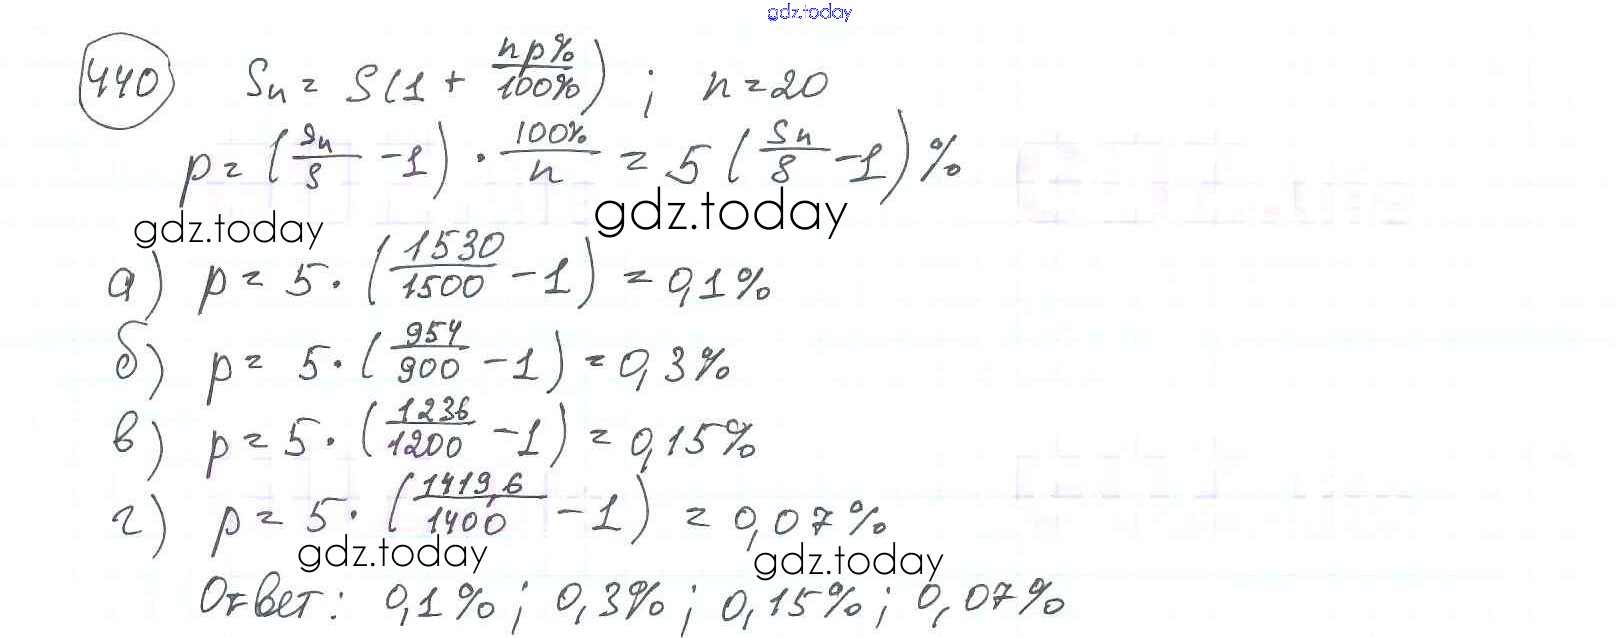 gdz.today
440 Sn = S(1 + np%/100%) ; n = 20
p = (Sn/S - 1) · 100%/n = 5 (Sn/S - 1) %
gdz.today gdz.today
а) p = 5 · (1530/1500 - 1) = 0,1%
б) p = 5 · (954/900 - 1) = 0,3%
в) p = 5 · (1236/1200 - 1) = 0,15%
г) p = 5 · (1419,6/1400 - 1) = 0,07%
gdz.today gdz.today
Ответ: 0,1%; 0,3%; 0,15%; 0,07%